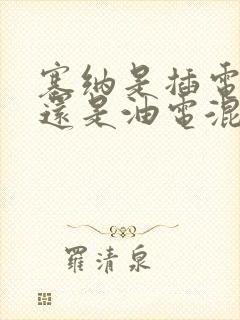 塞纳是插電
還是油電混
羅清泉